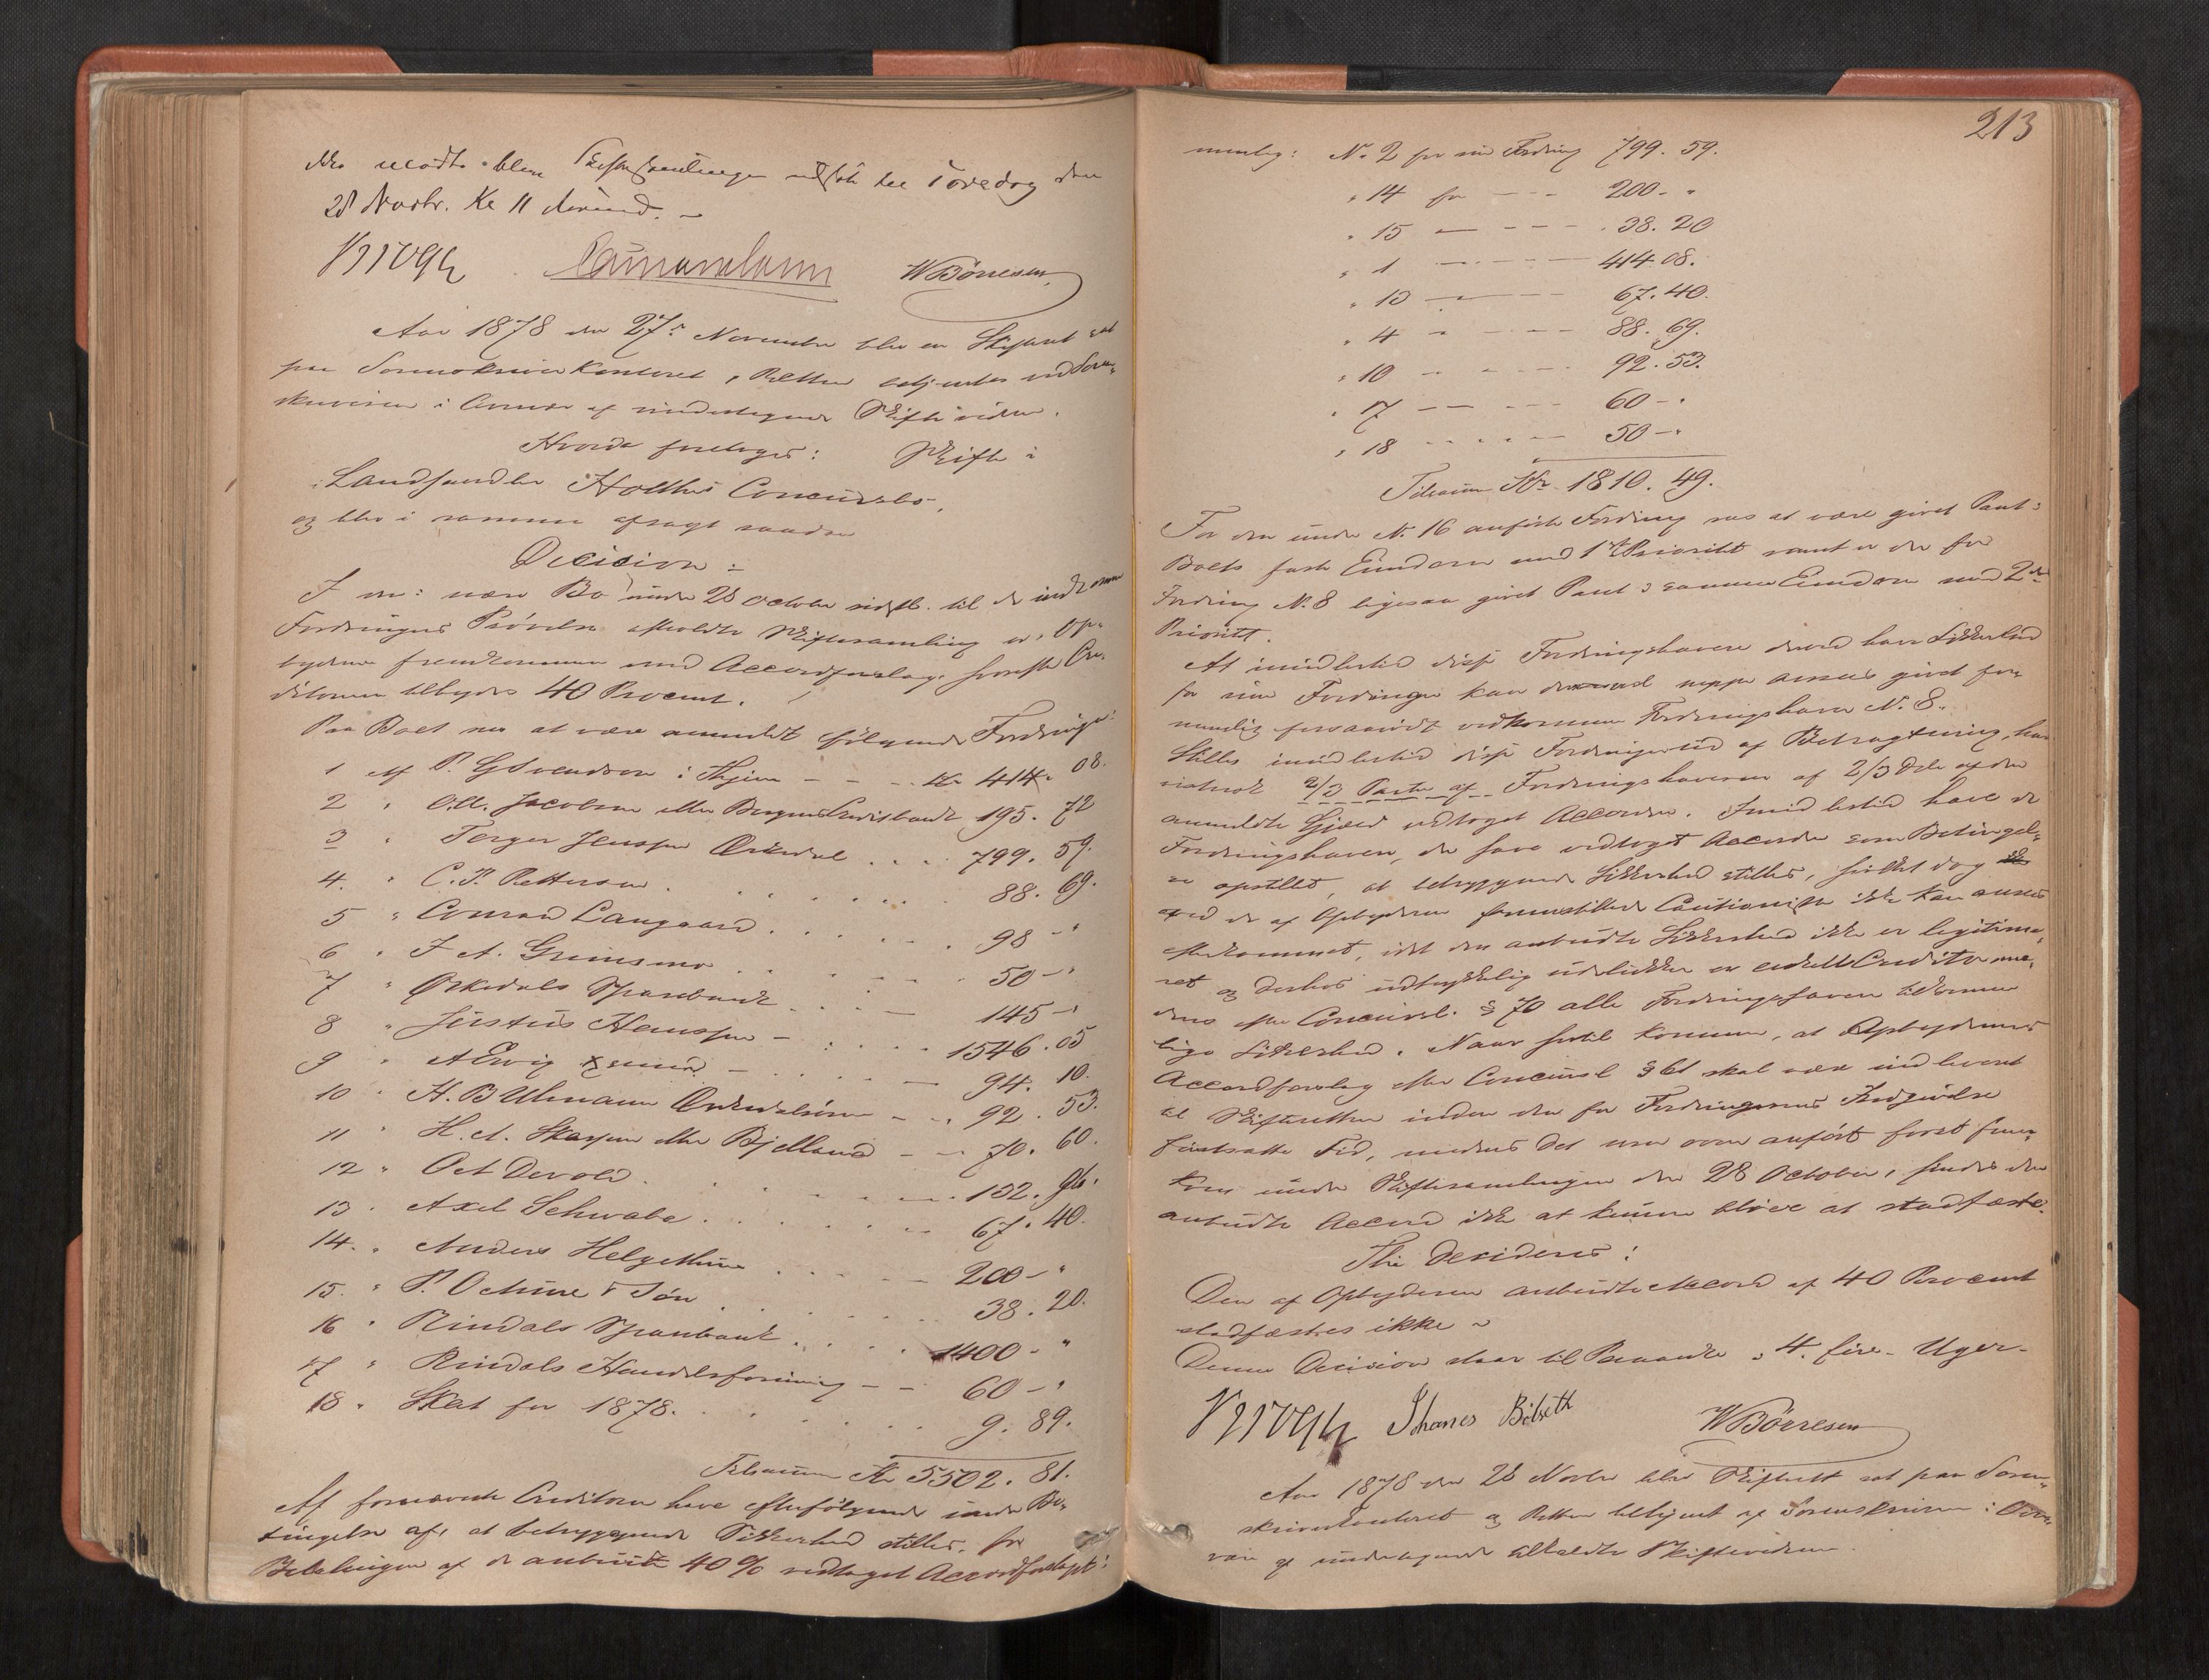 ikke mødte blev Skiftesamlingen udsat til Torsdag den
28 Novbr. Kl 11 Formd. –
Krogh W Børresen
Aar 1878 den 27de November blev en Skifteret sat
paa Sorenskriverkontoret, Retten betjentes ved Soren-
skriveren i Overvær af undertegnede Skiftevidner.
Hvorda foretoges: Skifte i
Landhandler Holthes Concursbo,
og blev i samme afsagt saadan
Decision:
I nær: være Bo under 28 October sidstl. til de indkomne
Fordringers Prøvelse afholdte Skiftesamling er Op-
byderen fremkommen med Accordforslag, hvorefter Cre-
ditorerne tilbydes 40 Procent.
Paa Boet sees at være anmeldt følgende Fordringer:
1 Af P. G Svendsen i Thjem - - - Kr 414. 08.
2 " O.A. Jacobsen eller Bergens Creditbank 195. 72
3 " Torger Jenssen Orkedal . . . . 799. 59.
4. " C. P. Pettersen . . . . . . 88. 69.
5 " Conrad Langaard . . . . . . 98 - "
6 " J A. Grimsmo . . . . . 50 - "
7 " Orkedals Sparebank . . . - 145 - "
8 " Justus Hanssen - . . . . 1546. 05
9 " A Ewig - . . . . - 94. 10.
10 " H. B Uhmann Orkedalsøren - - . 92. 53.
11 " H. A. Skarpen eller Bjelland - - 70. 60.
12 " Oct Devold . . . . . . . 132. 96.
13 . Axel Schwabe . . . . . . 67. 40.
14. " Anders Helgethun . . . . - 200 - "
15. " P. Octune & Søn . . . . . 38. 20.
16 " Rindals Sparebank . . . . . 1400 - "
17 " Rindals Handelsforening - - 60 - "
18 " Skat for 1878. . . . . . 9. 89.
Tilsammen Kr 5502. 81.
Af fornævnte Creditorer have efterfølgende under Be-
tingelse af, at betryggende Sikkerhed stilles for
Betalingen af de anbudte 40 % vedtaget Accordforslaget:
213
nemlig: No 2 for sin Fordring 799. 59.
" 14 for - - - 200 - "
" 15 - - - - . 38. 20
" 1 - - - - 414. 08.
" 13 - - - - 67. 40.
" 4 - - - - 88. 69.
" 10 - - - - 92. 53.
" 17 - - - - 60 - "
" 18 - - - - 50 - "
Tilsammen Kr 1810. 49.
For den under No 16 anførte Fordring sees at være givet Pant i
Boets faste Eiendom med 1ste Prioritet samt er der for
Fordring No 8 ligesaa givet Pant i samme Eiendom med 2den
Prioritet.
At imidlertid disse Fordringshavere derved have Sikkerhed
for sine Fordringer kan neppe ansees givet for,
navnlig forsaavidt vedkommer Fordringshaver No 8.
Stilles imidlertid disse Fordringer ud af Betragtning, har
vistnok 2/3 Parter af Fordringshaverne af 2/3 Dele af den
anmeldte Gjæld vedtaget Accorden. Imidlertid have de
Fordringshavere, der have vedtaget Accorden som Betingel-
se opstillet, at betryggende Sikkerhed stilles, hvilket dog
ved de af Opbyderen fremstillede Cautionister ikke kan ansees
efterkommet, idet den anbudte Sikkerhed ikke er legitime-
ret og derhos udtrykkelig udelukker en enkelt Creditor me-
dens efter Concursl. § 70 alle Fordringshavere tilkommer
lige Sikkerhed. Naar hertil kommer, at Opbyderens
Accordforslag efter Concursl § 61 skal være indleveret
til Skifteretten inden den for Fordringernes Angivelse
fastsatte Tid, medens det som oven anført først frem-
kom under Skiftesamlingen den 28 October, findes den
anbudte Accord ikke at kunne blive at stadfæste.
Thi Decideres:
Den af Opbyderen anbudte Accord af 40 Procent
stadfæstes ikke ~
Denne Decision staar til Paaanke i 4. fire - Uger -
Krogh Johannes Bolseth W Børresen
Aar 1878 den 28 Novbr blev Skifteret sat paa Soren-
skriverkontoret og Retten betjent af Sorenskriveren i Over-
vær af undertegnede tilkaldte Skiftevidner.